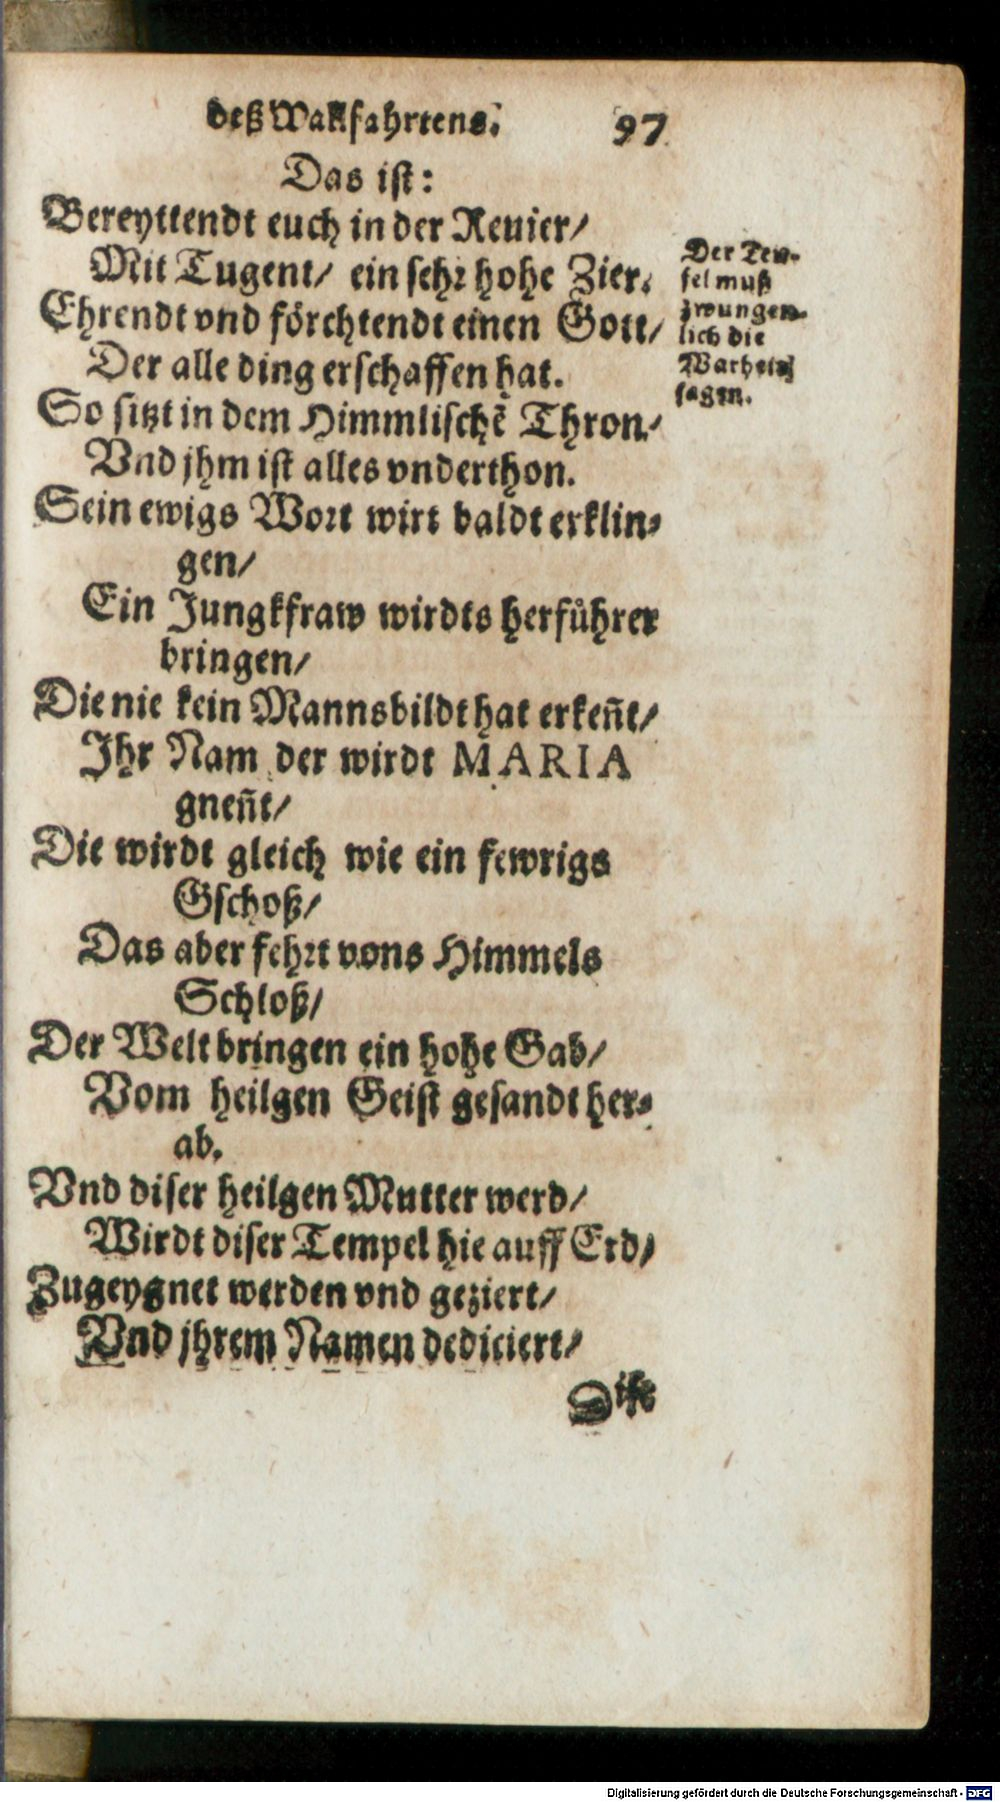 deß Wallfahrtens. 97
Das ist:
Bereyttendt euch in der Reuier/
Mit Tugent/ ein sehr hohe Zier.
Ehrendt vnd förchtendt einen Gott/
Der alle ding erschaffen hat.
So sitzt in dem Himmlischẽ Thron/
Vnd jhm ist alles vnderthon.
Sein ewigs Wort wirt baldt erklin-
gen/
Ein Jungkfraw wirdts herfůhrer
bringen/
Die nie kein Mannsbildt hat erkeñt/
Ihr Nam der wirdt MARIA
gneñt/
Die wirdt gleich wie ein fewrigs
Gschoß/
Das aber fehrt vons Himmels
Schloß/
Der Welt bringen ein hohe Gab/
Vom heilgen Geist gesandt her-
ab.
Vnd diser heilgen Mutter werd/
Wirdt diser Tempel hie auff Erd/
Zugeygnet werden vnd geziert/
Vnd jhrem Namen dediciert/
Dise
Der Teu-
fel muß
zwungen-
lich die
Warheit
sagen.
Digitalisierung gefördert durch die Deutsche Forschungsgemeinschaft - DFG